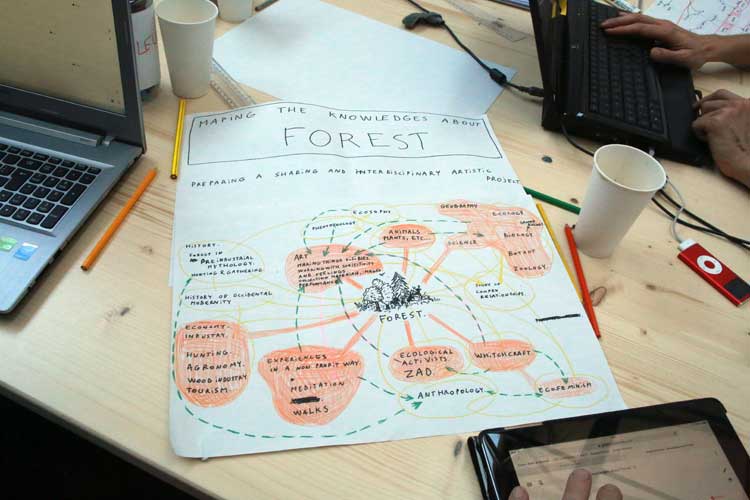 MAPING THE KNOWLEDGES ABOUT
FOREST
PREPARING A SHARING AND INTERDISCIPLINARY ARTISTIC
PROJECT
HISTORY.
FOREST IN
PREINDUSTRIAL
MYTHOLOGY.
HUNTING & GATHERING.
HISTORY OF OCCIDENTAL
MODERNITY
PHENOMENOLOGY
ECOSOPHY
ART
MAKING THINGS VISIBLES
WORKING WITH SENSITIVITY
AND FEELINGS
PERFORMANCE
ANIMALS
PLANTS, ETC...
GEOGRAPHY
ECOLOGY
SCIENCE
BIOLOGY
BOTANY
ZOOLOGY.
STUDY OF
COMPLEX
RELATIONSHIPS.
FOREST.
ECONOMY
INDUSTRY.
HUNTING
AGRONOMY.
WOOD INDUSTRY
TOURISM.
EXPERIENCES
IN A NON PROFIT WAY
MEDITATION
WALKS
ECOLOGICAL
ACTIVISTS
ZAD.
WHITCHCRAFT
ANTHROPOLOGY
ECOFEMINISM